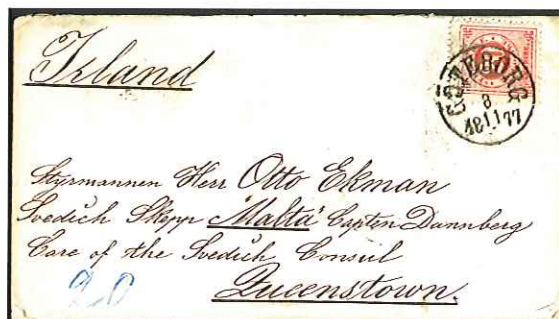 Irland
GÖTEBORG
8
11
1877
Styrmannen Herr Otto Ekman
Svedich Skepp "Malta" Capten Dannberg
Care of the Svedich Consul
Queenstown.
20